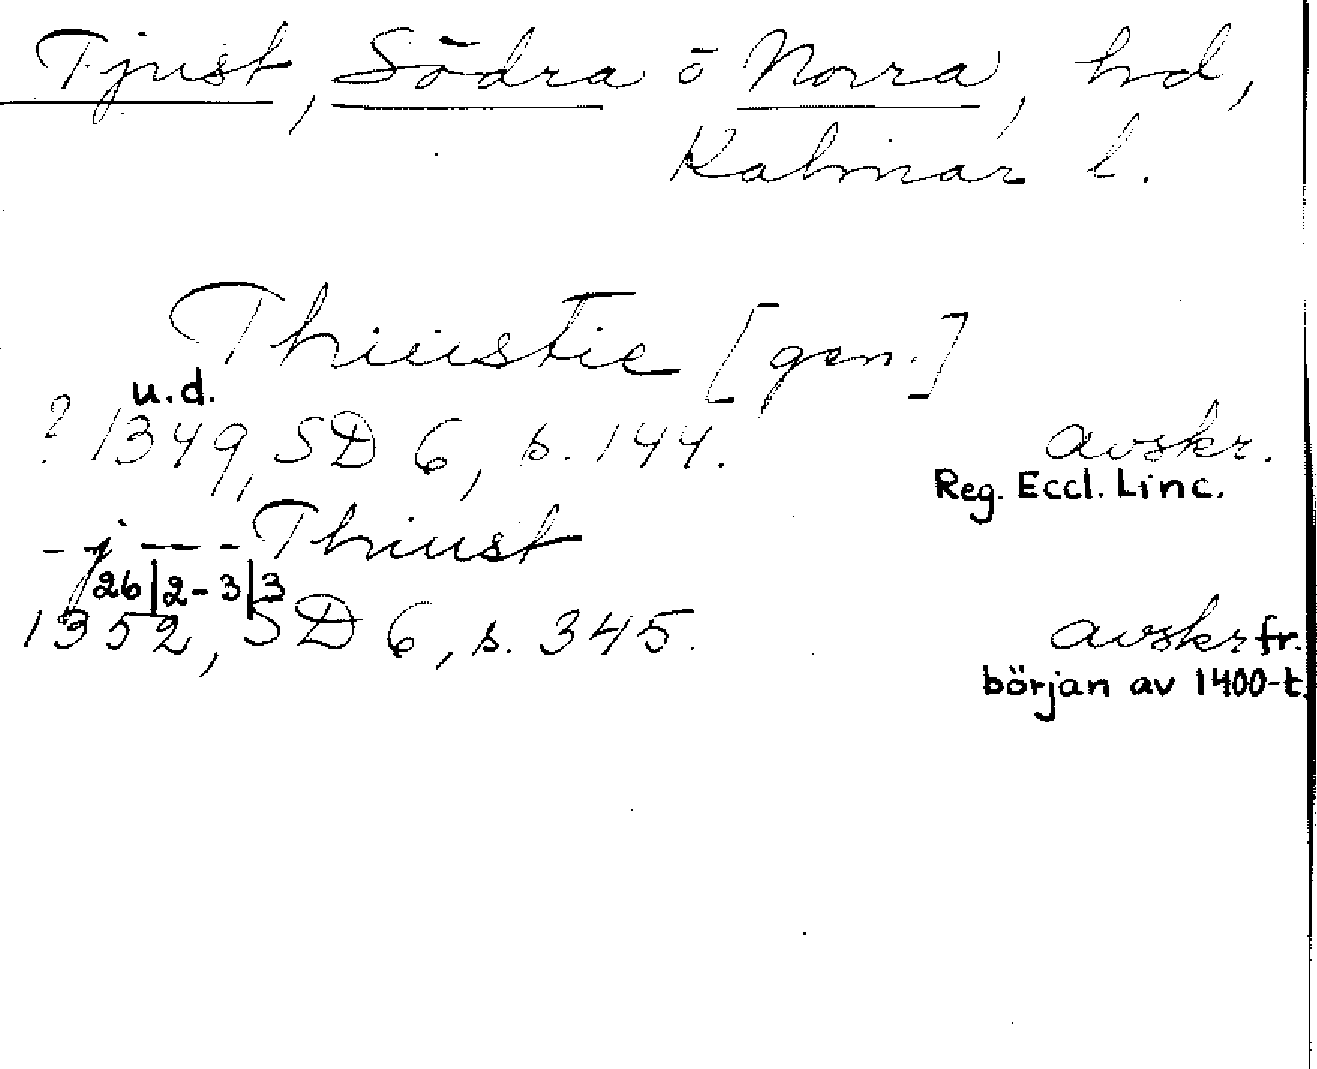 Tjust, Södra o Norra, hd,
Kalmar l.
Thiustie [gen.]
u.d.
? 1349, SD 6, s. 144. avskr.
Reg. Eccl. Linc.
- j - - - Thiust
26/2-3/3
1352, SD 6, s. 345. avskr fr.
början av 1400-t.